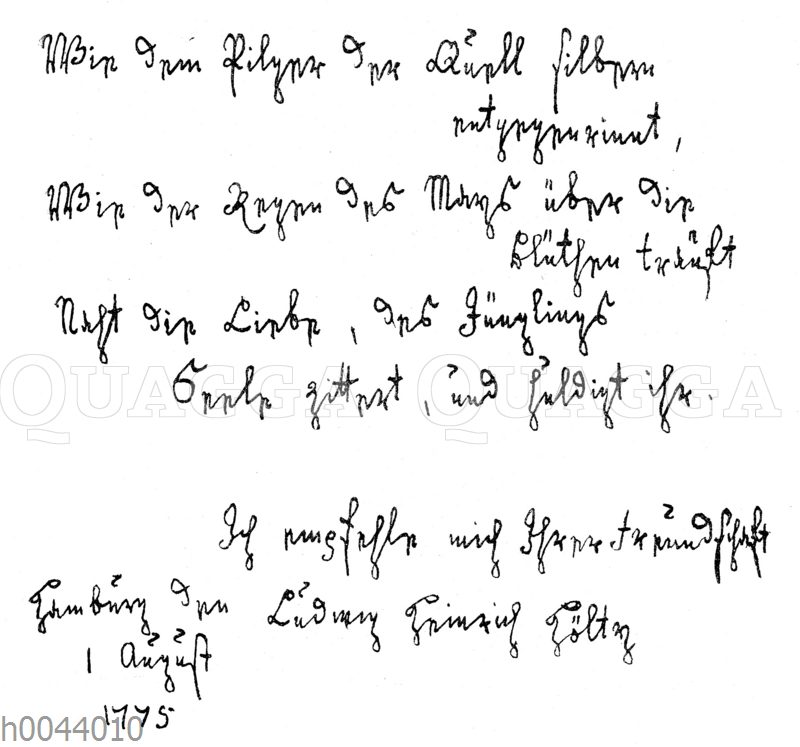 Wie dem Pilger der Quell silbern
entgegenrinnt,
Wie der Regen des Mays über die
Blüthen träuft
Naht die Liebe, des Jünglings
Seele zittert, und huldigt ihr.
QUAGGA QUAGGA
Ich empfehle mich Ihrer Freundschaft
Hamburg den Ludwig Heinrich Hölty
1 August
1775
h0044010